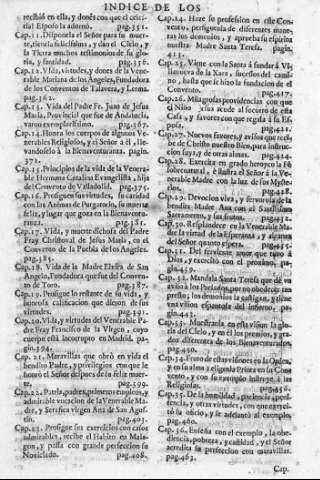 INDICE DE LOS
recibió en ella, y dones con que el
Esposo la adornó. pag.351.
Cap. 11. Dispone la el Señor para su muerte,
y dan el Cielo, y
la Tierra muchos testimonios de su gloria,
y santidad. pag.356.
Cap. 12. Vida, virtudes, y dones de la Venerable
Mariana de los Angeles, Fundadora
de los Conventos de Talavera, y Lerma.
pag.362.
Cap. 13. Vida del Padre Fr. Juan de Jesus
Maria, Provincial que fue de Andalucia,
varon exemplarissimo. pag.367.
Cap. 14. Honra los cuerpos de algunos Venerables
Religiosos, y el Señor a èl, llevandoselo
à la Bienaventurança. pagin.
372.
Cap. 15. Principios de la vida de la Venerable
Hermana Catalina Evangelista, hija
del Convento de Valladolid. pag.375.
Cap. 16. Prosiguen sus virtudes, su caridad
con las Animas de Purgatorio, su muerte
feliz, y lugar que goza en la Bienaventurança.
pag.381.
Cap. 17. Vida, y muerte dichosa del Padre
Fray Christoval de Jesus Maria, en el
Convento de la Puebla de los Angeles.
pag.385.
Cap. 18. Vida de la Madre Elvira de San
Angelo, Fundadora que fue del Convento
de Toro. pag.387.
Cap. 19. Prosigue lo restante de su vida, y
honrosa calificacion que dieron de sus
virtudes. pag.391.
Cap. 20. Vida, y virtudes del Venerable Padre
Fray Francisco de la Virgen, cuyo
cuerpo está incorrupto en Madrid. pagin.
394.
Cap. 21. Maravillas que obró en vida el
bendito Padre, y privilegios con que le
honró el Señor despues de su feliz muerte.
pag.399.
Cap. 22. Patria, padres, primeros empleos, y
admirable vocacion de la Venerable Madre,
y Serafica virgen Ana de San Agustin.
pag.403.
Cap. 23. Prosigue sus exercicios con casos
admirables, recibe el Habito en Malagon,
y passa con grande perfeccion su
Noviciado. pag.408.
Cap. 24. Haze su profession en este Convento,
persiguenla de diferentes maneras
los demonios, y aprueba su espiritu
nuestra Madre Santa Teresa. pagin.
Cap. 25. Viene con la Santa a fundar à Villanueva
de la Xara, sucessos del camino,
hasta que se hizo la fundacion de el
Convento. pag.417.
Cap. 26. Milagrosas providencias con que
el Niño acude al socorro de esta
Casa, y favores con que regala à su Esposa.
Cap. 27. Nuevos favores, y avisos que recibe
de Christo nuestro Bien, para instruccion
suya, y de otras almas.
Cap. 28. Exercita en grado heroyco la Fè
sobrenatural, è ilustra el Señor à la Venerable
Madre con la luz de sus Mysterios.
pag.428.
Cap. 29. Devocion viva, y fervorosa de la
bendita Madre Ana con el Santissimo
Sacramento, y sus frutos.
Cap. 30. Resplandece en la Venerable Madre
la virtud de la Esperança, y algunas
del Señor quanto espera.
Cap. 31. Del ferviente amor que tuvo à
Dios, y exercitó con el proximo. pagin.
439.
Cap. 32. Mandala Santa Teresa que dè un
aviso à los Prelados, por no obedecer tan
presto, los demonios la castigan, y tiene
una vision espantosa del infierno. pagin.
443.
Cap. 33. Muestranla en esta vision la gloria
del Cielo, y en èl los premios, y grados
diferentes de los Bienaventurados.
pag.450.
Cap. 34. Fruto de estas visiones en la Orden,
y en su alma: eligenla Priora en su Convento,
y con su exemplo instruye à las
Religiosas.
Cap. 35. De la humildad, paciencia, penitencia,
y otras virtudes, con que exercitó
su oficio, y se adelantó al exemplo.
pag.460.
Cap. 36. Enseña con el exemplo, la obediencia,
pobreza, y castidad, y el Señor
acredita su perfeccion con maravillas.
pag.463.
Cap.